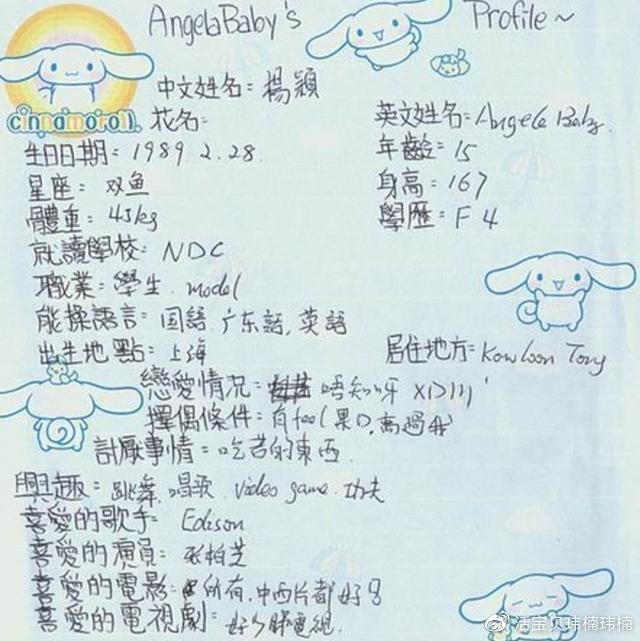 AngelaBaby's Profile~
cinnamoroll
中文姓名=楊穎
花名= 英文姓名=Angela Baby
生日日期=1989.2.28. 年齡=15
星座=双鱼 身高=167
體重=45kg 學歷=F4
就讀學校=NDC
職業=學生 model
能操語言=国語,广东語,英語
出生地點=上海 居住地方=Kowloon Tong
戀愛情況= 唔知呀 XD
擇偶條件=有feel果D,高過我
討厭事情=吃苦的東西.
興趣=跳舞.唱歌.video game.功夫
喜愛的歌手=Edison
喜愛的演員=张柏芝
喜愛的電影=所有,中西片都好
喜愛的電視劇=好少睇電視.
活宝贝玮楠玮楠